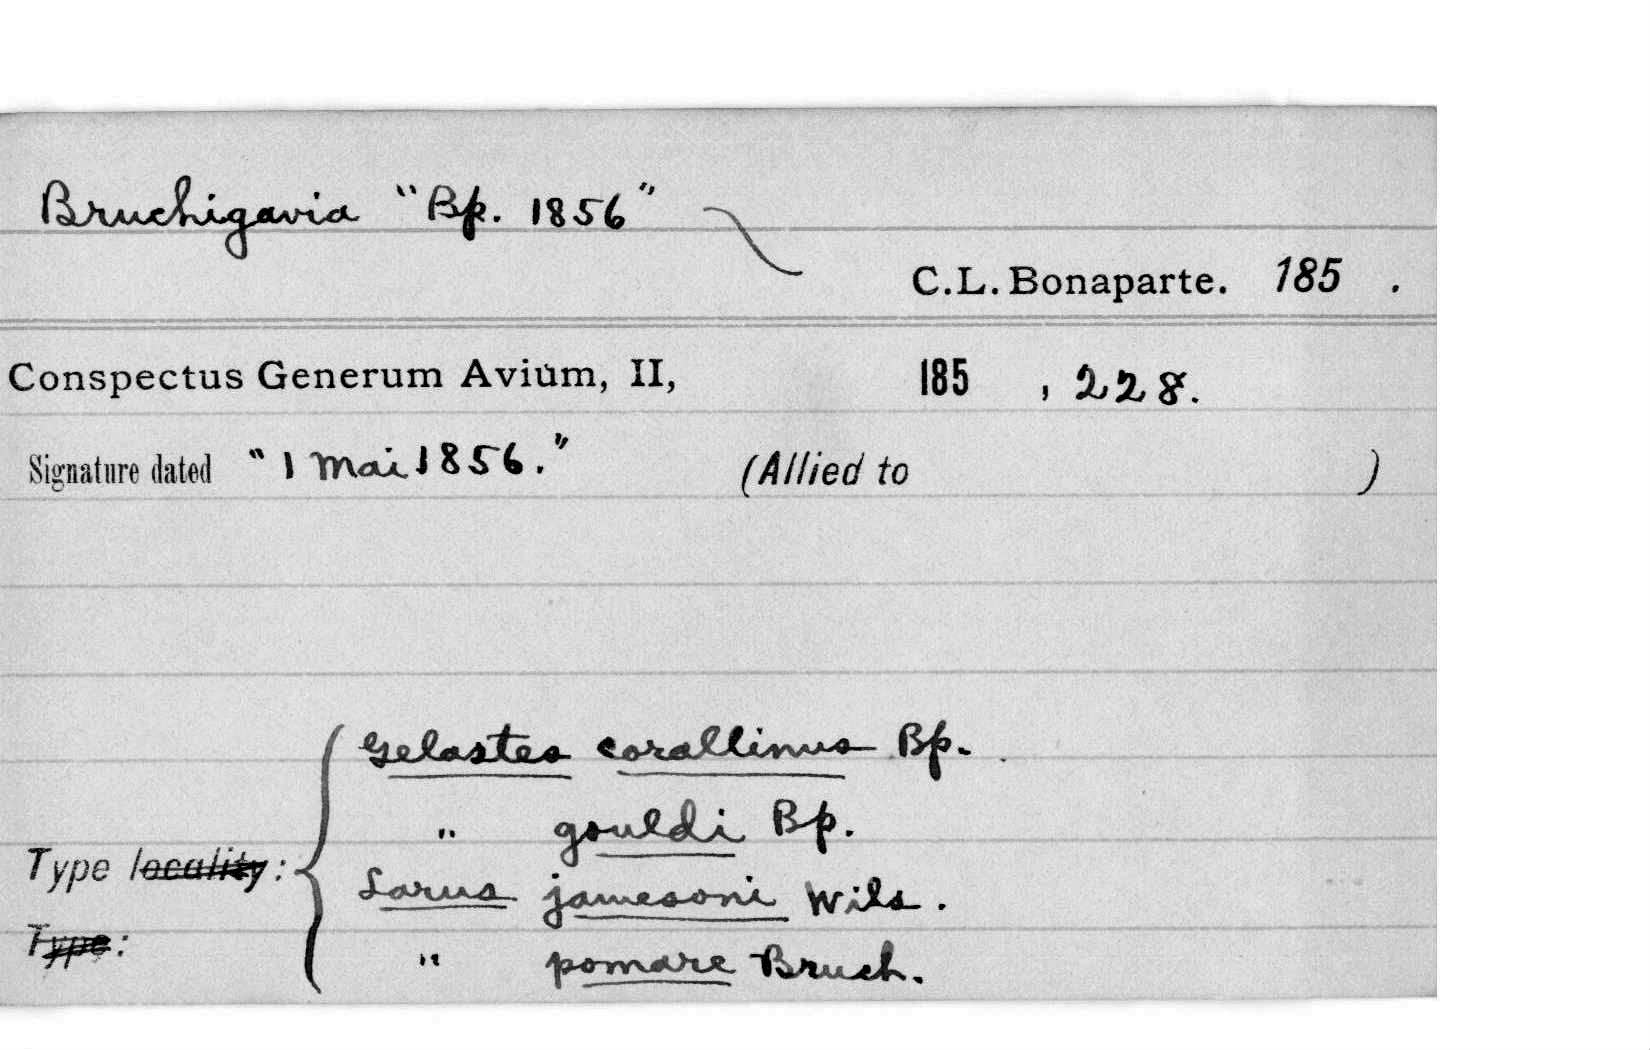 Bruchigavia "Bp. 1856"
C.L. Bonaparte. 185 .
Conspectus Generum Avium, II, 185 , 228.
Signature dated "1 Mai 1856." (Allied to )
Gelastes corallinus Bp.
" gouldi Bp.
Type locality:
Larus jamesoni Wils.
Type:
" pomare Bruch.